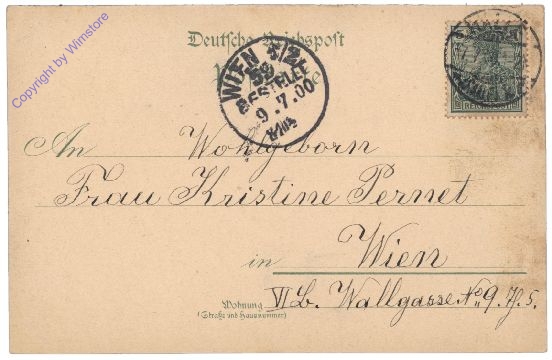 Copyright by Wimstore
Deutsche Reichspost
WIEN
BESTELLT
9.7.00
REICHSPOST
An Wohlgeborn
Frau Kristine Pernet
in Wien
Wohnung
(Straße und Hausnummer)
VI. b. Wallgasse No 9.